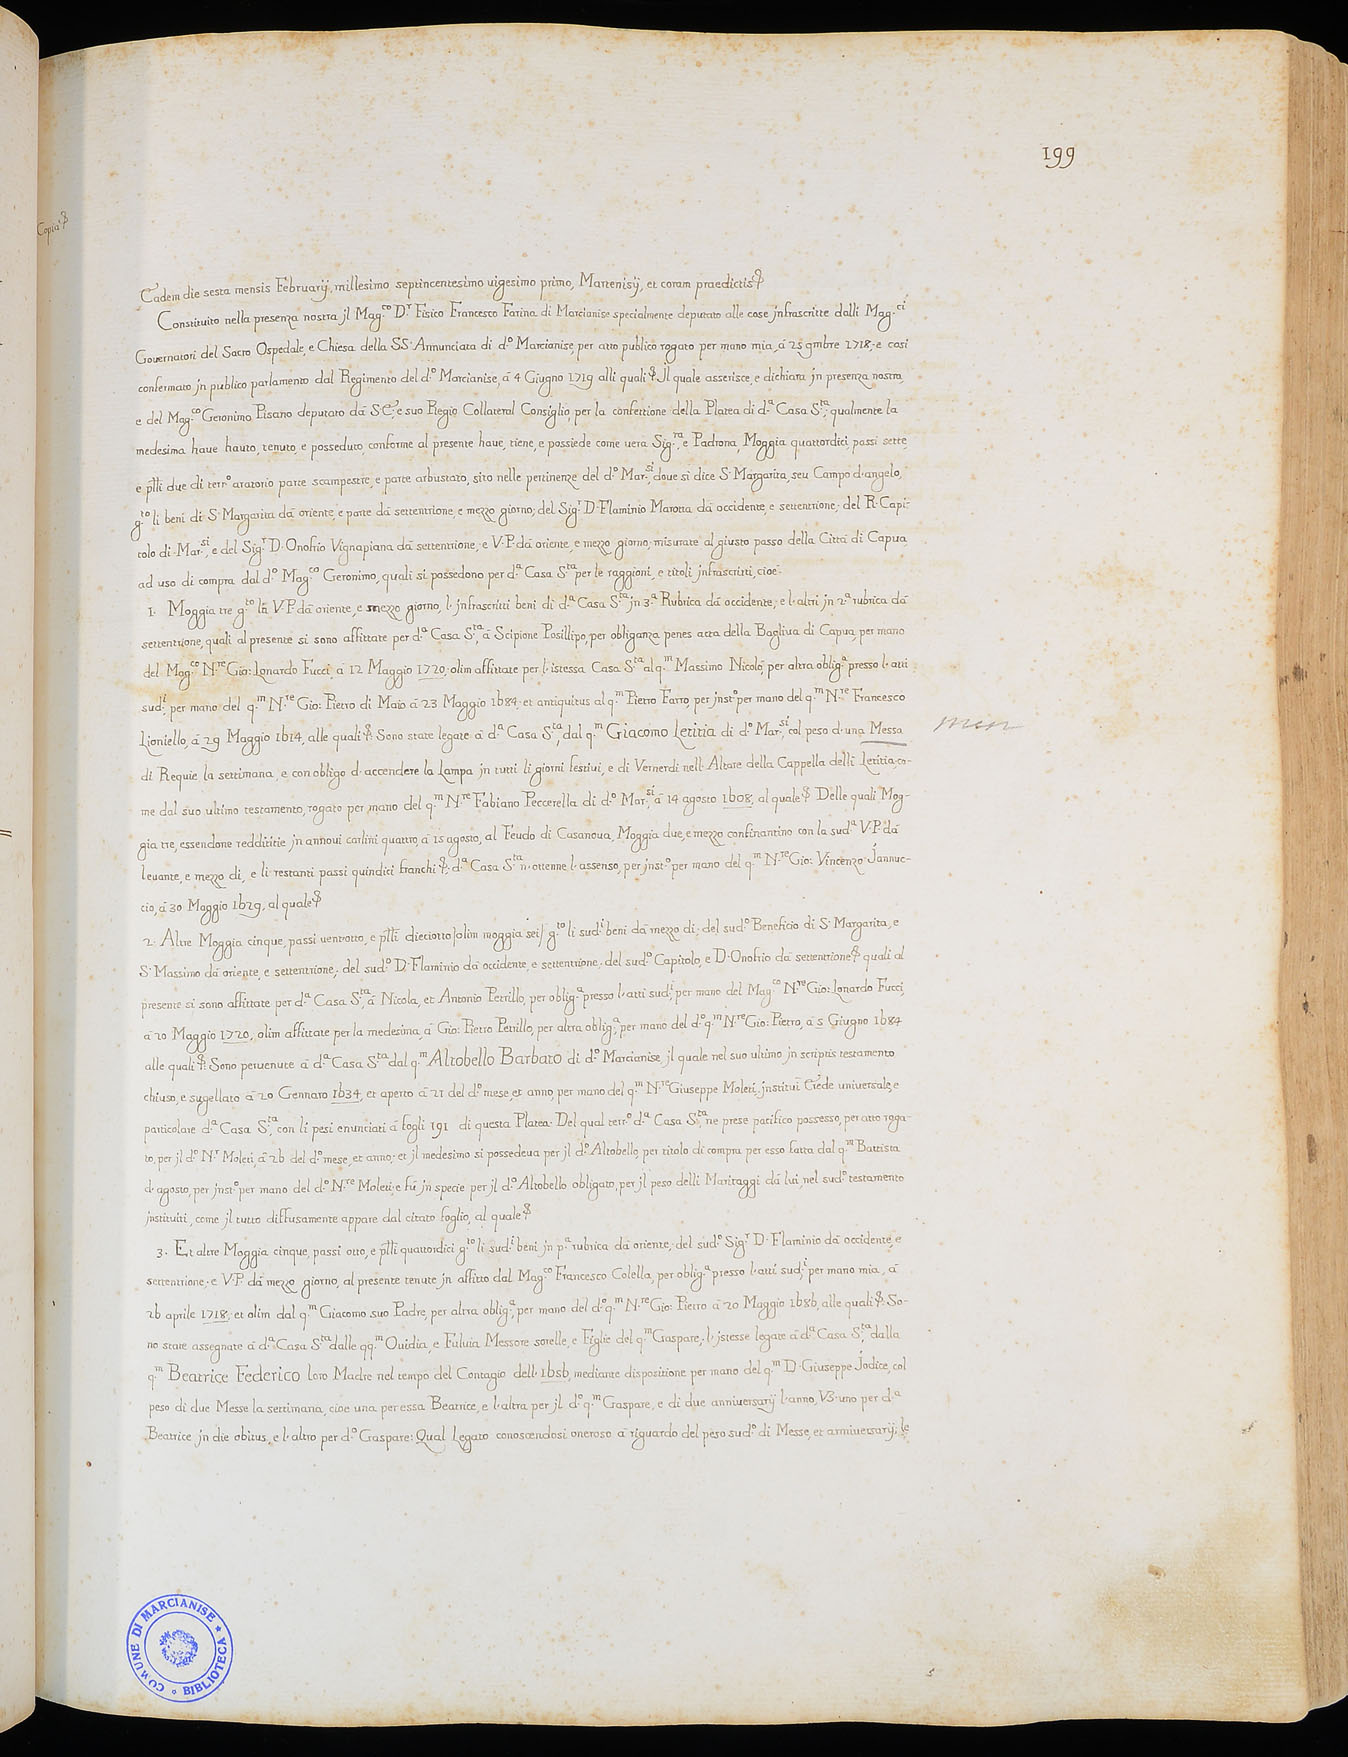 199
Copia
Eadem die sesta mensis Februarij, millesimo septincentesimo uigesimo primo, Martenisij, et coram praedictis
Constituito nella presenza nostra jl Mag.co D.r Fisico Francesco Farina di Marcianise specialmente deputato alle cose jnfrascritte dalli Mag.ci
Gouernatori del Sacro Ospedale, e Chiesa della SS. Annunciata di d.o Marcianise, per atto publico rogato per mano mia, à 25 9mbre 1718, e così
confermato jn publico parlamento dal Regimento del d.o Marcianise, à 4 Giugno 1719 alli quali Jl quale asserisce, e dichiara jn presenza nostra,
e del Mag.co Geronimo Pisano deputato dà S.E., e suo Regio Collateral Consiglio, per la confettione della Platea di d.a Casa S.ta, qualmente la
medesima haue hauto, tenuto, e posseduto conforme al presente haue, tiene, e possiede come uera Sig.ra, e Padrona, Moggia quattordici, passi sette,
e p̃lli due di terr.o aratorio parte scampestre, e parte arbustato, sito nelle pertinenze del d.o Mar.si, doue si dice S. Margarita, seu Campo d'angelo,
g.to li beni di S. Margarita dà oriente, e parte dà settentrione, e mezzo giorno; del Sig.r D. Flaminio Marotta dà occidente, e settentrione; del R. Capi-
tolo di Mar.si, e del Sig.r D. Onofrio Vignapiana dà settentrione; e V.P. dà oriente, e mezzo giorno, misurate al giusto passo della Città di Capua
ad uso di compra dal d.o Mag.co Geronimo, quali si possedono per d.a Casa S.ta per le raggioni, e titoli jnfrascritti, cioe:
1. Moggia tre g.to la V.P. dà oriente, e mezzo giorno, l'jnfrascritti beni di d.a Casa S.ta jn 3.a Rubrica dà occidente, e l'altri jn 2.a rubrica dà
settentrione, quali al presente si sono affittate per d.a Casa S.ta, à Scipione Posillipo, per obliganza penes acta della Bagliua di Capua, per mano
del Mag.co N.re Gio: Lonardo Fucci, à 12 Maggio 1720, olim affittate per l'istessa Casa S.ta al q.m Massimo Nicolò, per altra oblig.a presso l'atti
sud.i, per mano del q.m N.re Gio: Pietro di Maio à 23 Maggio 1684, et antiquitus al q.m Pietro Farro, per jnst.o per mano del q.m N.re Francesco
Lioniello, à 29 Maggio 1614, alle quali: Sono state legate à d.a Casa S.ta, dal q.m Giacomo Letitia di d.o Mar.si, col peso d'una Messa
di Requie la settimana, e con obligo d'accendere la Lampa jn tutti li giorni festiui, e di Vernerdi nell'Altare della Cappella delli Letitia, co-
me dal suo ultimo testamento, rogato per mano del q.m N.re Fabiano Peccerella di d.o Mar.si à 14 agosto 1608, al quale Delle quali Mog-
gia tre, essendone reddititie jn annoui carlini quattro, à 15 agosto, al Feudo di Casanoua, Moggia due, e mezzo confinantino con la sud.a V.P. dà
leuante, e mezzo di, e li restanti passi quindici franchi; d.a Casa S.ta n'ottenne l'assenso, per jnst.o per mano del q.m N.re Gio: Vincenzo Jannuc-
cio, à 30 Maggio 1629, al quale
2. Altre Moggia cinque, passi uentotto, e p̃lli dieciotto/olim moggia sei/ g.to li sud.i beni dà mezzo di; del sud.o Beneficio di S. Margarita, e
S. Massimo dà oriente, e settentrione; del sud.o D. Flaminio dà occidente, e settentrione; del sud.o Capitolo, e D. Onofrio dà settentrione quali al
presente si sono affittate per d.a Casa S.ta, à Nicola, et Antonio Petrillo, per oblig.a presso l'atti sud.i, per mano del Mag.co N.re Gio: Lonardo Fucci,
à 20 Maggio 1720, olim affittate per la medesima, à Gio: Pietro Petrillo, per altra oblig.a, per mano del d.o q.m N.re Gio: Pietro, à 5 Giugno 1684
alle quali: Sono peruenute à d.a Casa S.ta dal q.m Altobello Barbato di d.o Marcianise, jl quale nel suo ultimo jn scriptis testamento
chiuso, e sugellato à 20 Gennaro 1634, et aperto à 21 del d.o mese, et anno, per mano del q.m N.re Giuseppe Moleti, jnstitui Erede uniuersale, e
particolare d.a Casa S.ta, con li pesi enunciati à fogli 191 di questa Platea. Del qual terr.o d.a Casa S.ta ne prese pacifico possesso, per atto roga-
to, per jl d.o N.r Moleti, à 26 del d.o mese, et anno; et jl medesimo si possedeua per jl d.o Altobello, per titolo di compra per esso fatta dal q.m Battista
d'agosto, per jnst.o per mano del d.o N.re Moleti; e fù jn specie per jl d.o Altobello obligato, per jl peso delli Maritaggi dà lui, nel sud.o testamento
jnstituiti, come jl tutto diffusamente appare dal citato foglio, al quale
3. Et altre Moggia cinque, passi otto, e p̃lli quattordici g.to li sud.i beni jn p.a rubrica dà oriente; del sud.o Sig.r D. Flaminio dà occidente, e
settentrione; e V.P. dà mezzo giorno, al presente tenute jn affitto dal Mag.co Francesco Colella, per oblig.a presso l'atti sud.i, per mano mia, à
26 aprile 1718; et olim dal q.m Giacomo suo Padre, per altra oblig.a, per mano del d.o q.m N.re Gio: Pietro à 20 Maggio 1686, alle quali: So-
no state assegnate à d.a Casa S.ta dalle qq.m Ouidia, e Fuluia Messore sorelle, e Figlie del q.m Gaspare; l'jstesse legate à d.a Casa S.ta, dalla
q.m Beatrice Federico loro Madre nel tempo del Contagio dell'1656, mediante dispositione per mano del q.m D. Giuseppe Jodice, col
peso di due Messe la settimana, cioe una per essa Beatrice, e l'altra per jl d.o q.m Gaspare, e di due anniuersarij l'anno, V3. uno per d.a
Beatrice jn die obitus, e l'altro per d.o Gaspare: Qual Legato conoscendosi oneroso à riguardo del peso sud.o di Messe, et anniuersarij; le
COMUNE DI MARCIANISE * BIBLIOTECA *